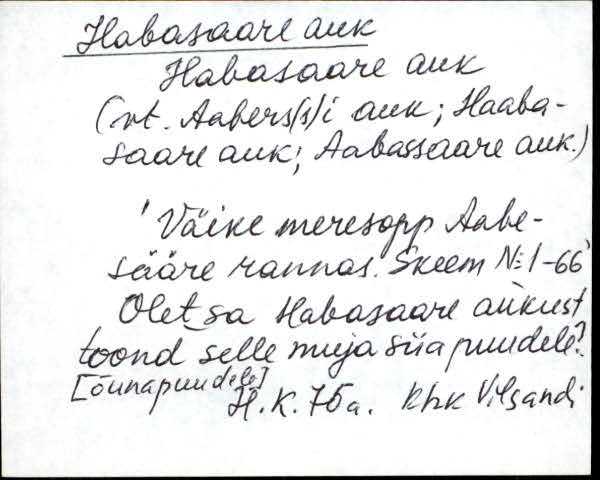 Habasaare auk
Habasaare auk
(vt. Aabers(s)i auk; Haaba-
saare auk; Aabassaare auk.)
'Väike meresopp Aabe-
sääre rannas. Skeem N: 1-66'
Olet sa Habasaare aukust
toond selle muja siia puudele?
[õunapuudele]
H.K. 75a. khk Vilsandi